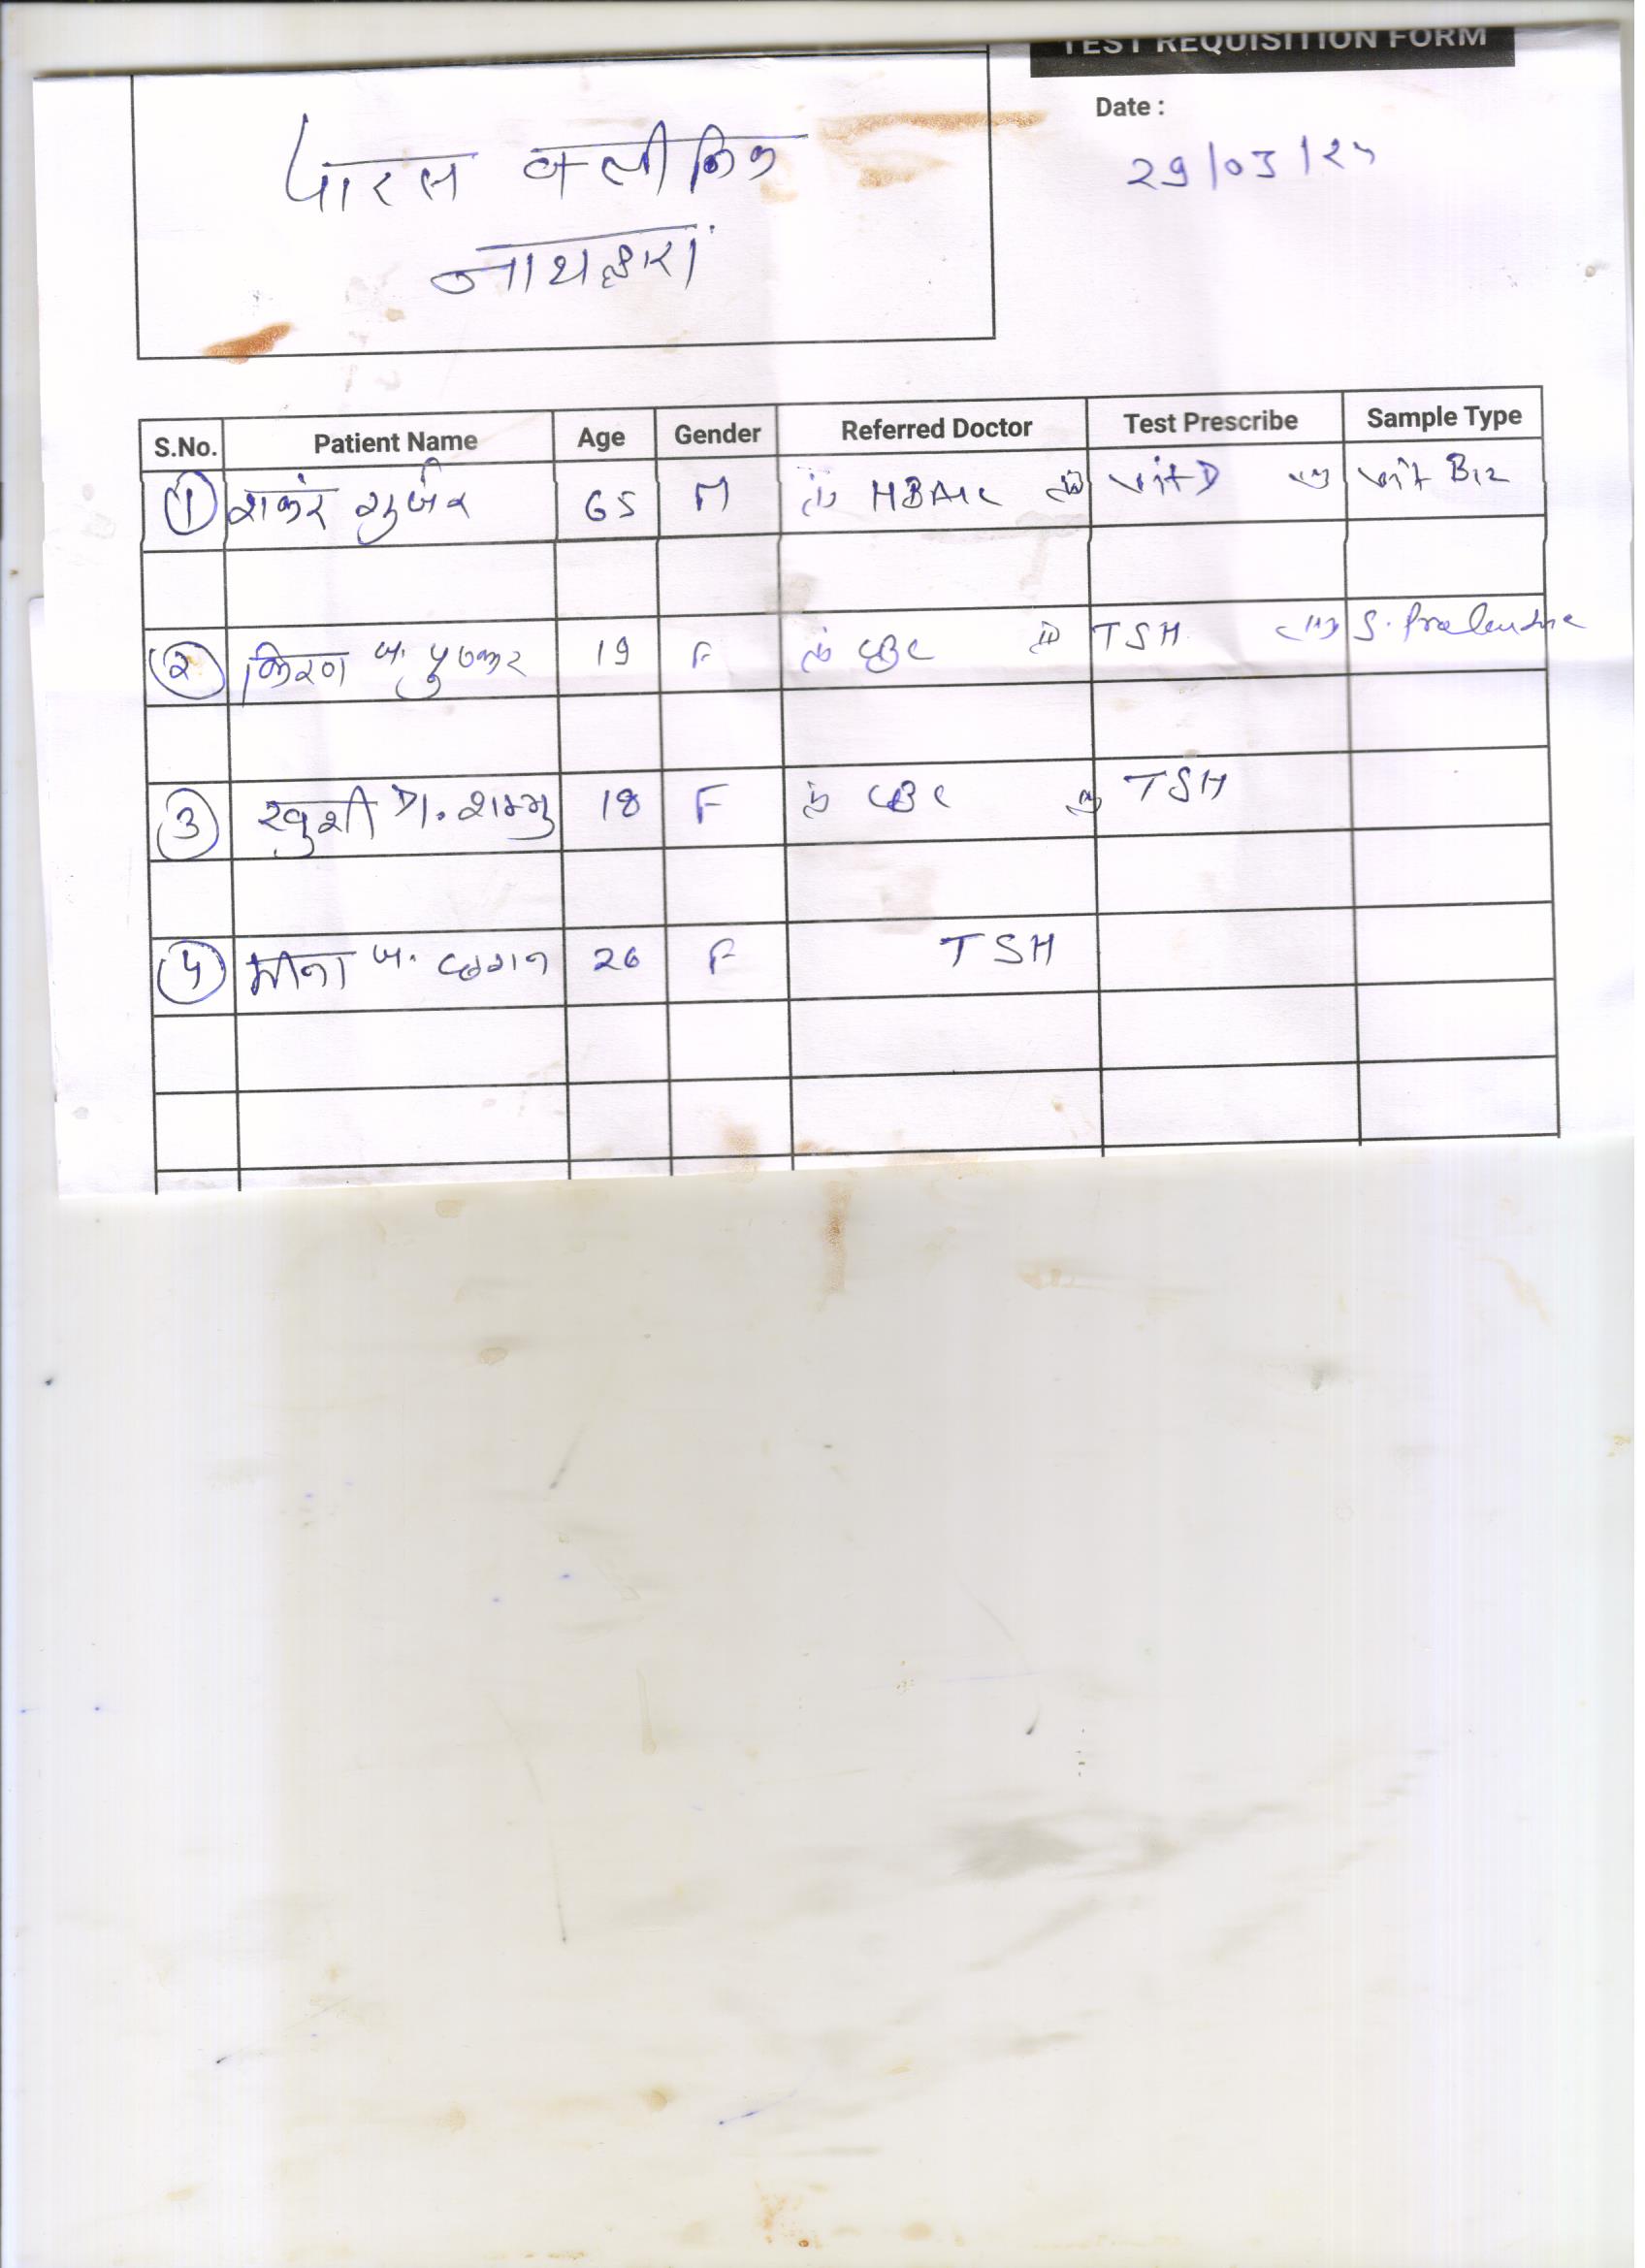 TEST REQUISITION FORM
Date :
29/03/25
पारस क्लीनिक
नाथद्वारा
S.No. Patient Name Age Gender Referred Doctor Test Prescribe Sample Type
1 शकंर गुर्जर 65 M (i) HBA1c (ii) Vit D (iii) Vit B12
2 किरण W. पुष्कर 19 F (i) CBC (ii) TSH (iii) S.
3 खुशी D. शम्भु 18 F (i) CBC (ii) TSH
4 मीना W. छगन 26 F TSH